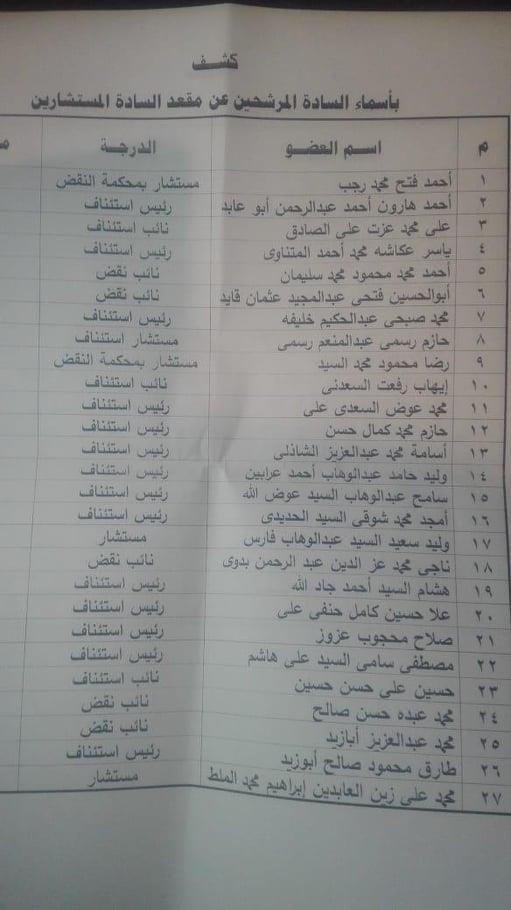 كشف
بأسماء السادة المرشحين عن مقعد السادة المستشارين
م اسم العضو الدرجة
١ أحمد فتح محمد رجب مستشار بمحكمة النقض
٢ أحمد هارون أحمد عبدالرحمن أبو عابد رئيس استئناف
٣ على محمد عزت على الصادق نائب استئناف
٤ ياسر عكاشه محمد أحمد المتناوى رئيس استئناف
٥ أحمد محمد محمود محمد سليمان نائب نقض
٦ أبوالحسين فتحى عبدالمجيد عثمان قايد نائب نقض
٧ محمد صبحى عبدالحكيم خليفه رئيس استئناف
٨ حازم رسمى عبدالمنعم رسمى مستشار استئناف
٩ رضا محمود محمد السيد مستشار بمحكمة النقض
١٠ إيهاب رفعت السعدنى نائب استئناف
١١ محمد عوض السعدى على رئيس استئناف
١٢ حازم محمد كمال حسن رئيس استئناف
١٣ أسامة محمد عبدالعزيز الشاذلى رئيس استئناف
١٤ وليد حامد عبدالوهاب أحمد عرابين رئيس استئناف
١٥ سامح عبدالوهاب السيد عوض الله رئيس استئناف
١٦ أمجد محمد شوقى السيد الحديدى رئيس استئناف
١٧ وليد سعيد السيد عبدالوهاب فارس مستشار
١٨ ناجى محمد عز الدين عبد الرحمن بدوى نائب نقض
١٩ هشام السيد أحمد جاد الله رئيس استئناف
٢٠ علا حسين كامل حنفى على رئيس استئناف
٢١ صلاح محجوب عزوز رئيس استئناف
٢٢ مصطفى سامى السيد على هاشم رئيس استئناف
٢٣ حسين على حسن حسين نائب استئناف
٢٤ محمد عبده حسن صالح نائب نقض
٢٥ محمد عبدالعزيز أبازيد نائب نقض
٢٦ طارق محمود صالح أبوزيد رئيس استئناف
٢٧ محمد على زين العابدين إبراهيم محمد الملط مستشار